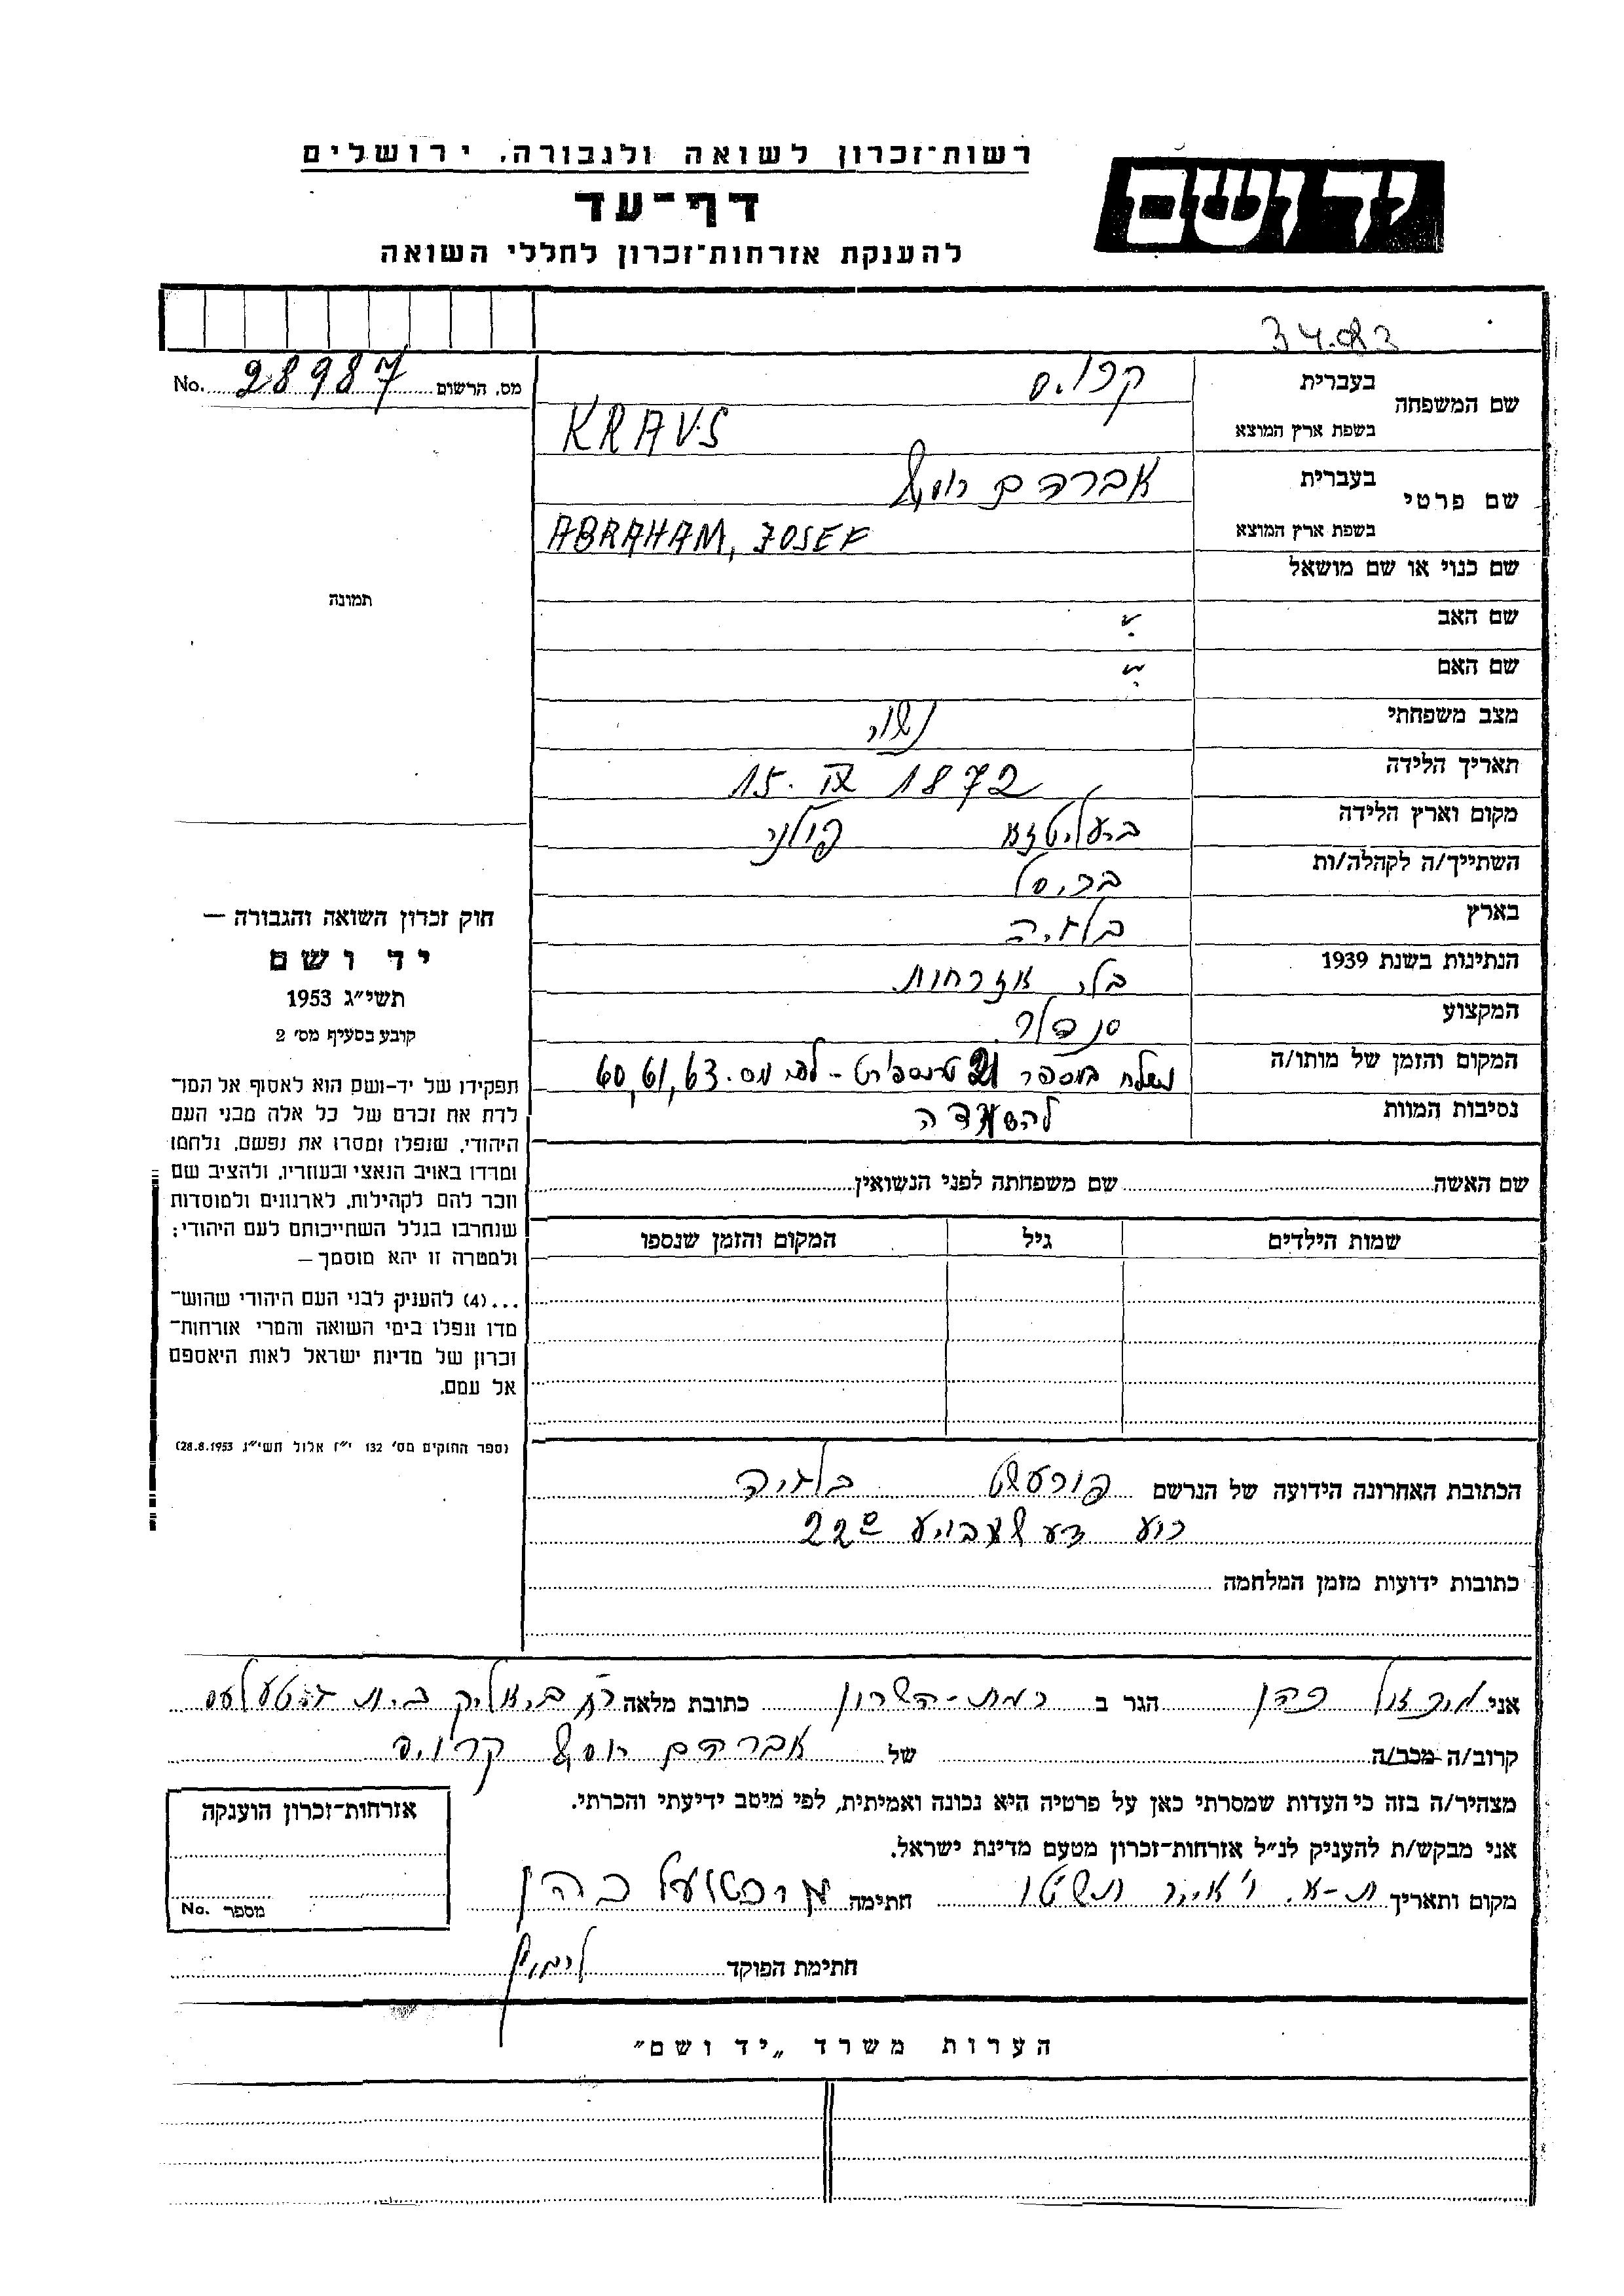 רשות־זכרון לשואה ולגבורה, ירושלים
יד ושם
דף־עד
להענקת אזרחות־זכרון לחללי השואה
34.083
מס. הרשום 28987 No.
שם המשפחה
בעברית
בשפת ארץ המוצא KRAVS
שם פרטי
בעברית אברהם יוסף
בשפת ארץ המוצא ABRAHAM, JOSEF
שם כנוי או שם מושאל
שם האב
שם האם
מצב משפחתי נשוי
תאריך הלידה 15. IX 1872
מקום וארץ הלידה פולני
השתייך/ה לקהלה/ות בריסל
בארץ בלגיה
הנתינות בשנת 1939 בלי אזרחות
המקצוע סנדלר
המקום והזמן של מותו/ה נשלח במספר 21 טרנספורט - לפי מס. 60,61,63
נסיבות המוות להשמדה
תמונה
חוק זכרון השואה והגבורה —
יד ושם
תשי״ג 1953
קובע בסעיף מס׳ 2
תפקידו של יד-ושם הוא לאסוף אל המו־
לדת את זכרם של כל אלה מבני העם
היהודי, שנפלו ומסרו את נפשם, נלחמו
ומרדו באויב הנאצי ובעוזריו, ולהציב שם
וזכר להם לקהילות, לארגונים ולמוסדות
שנחרבו בגלל השתייכותם לעם היהודי;
ולמטרה זו יהא מוסמך —
...(4) להעניק לבני העם היהודי שהוש־
מדו ונפלו בימי השואה והמרי אזרחות־
זכרון של מדינת ישראל לאות היאספם
אל עמם.
(ספר החוקים מס׳ 132 י״ז אלול תשי״ג 28.8.1953)
שם האשה שם משפחתה לפני הנשואין
שמות הילדים גיל המקום והזמן שנספו
הכתובת האחרונה הידועה של הנרשם פורעסט בלגיה
22
כתובות ידועות מזמן המלחמה
אני כהן הגר ב רמת-השרון כתובת מלאה
קרוב/ה מכר/ה של אברהם יוסף
מצהיר/ה בזה כי העדות שמסרתי כאן על פרטיה היא נכונה ואמיתית, לפי מיטב ידיעתי והכרתי.
אני מבקש/ת להעניק לנ״ל אזרחות־זכרון מטעם מדינת ישראל.
מקום ותאריך ת-א. חתימה כהן
חתימת הפוקד
אזרחות־זכרון הוענקה
מספר No.
הערות משרד „יד ושם״